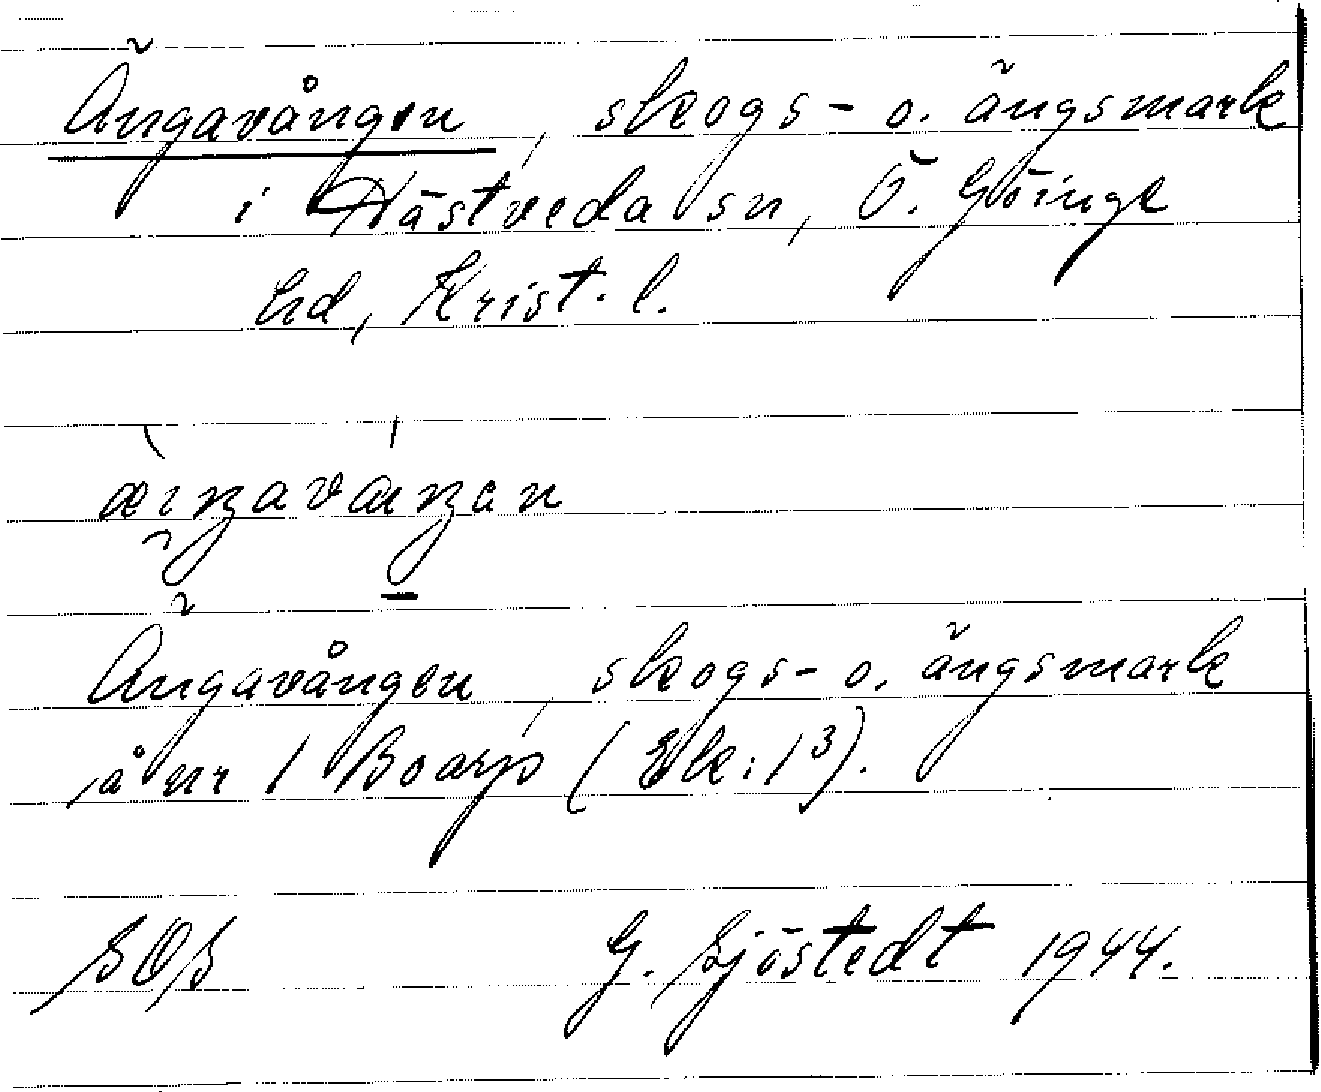 Ängavången, skogs- o. ängsmark
i Hästveda sn, Ö. Göinge
hd, Krist. l.
Ängavången, skogs- o. ängsmark
å nr 1 Boarp (Ek: 1³).
SOS G. Sjöstedt 1944.